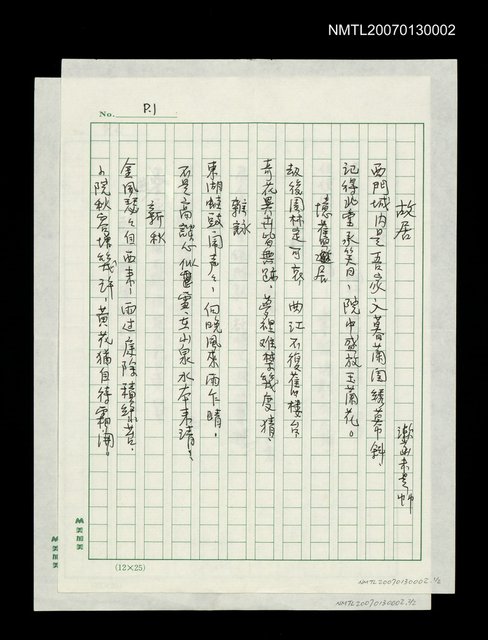 NMTL20070130002
No. P.1
故居
西門城内是吾家,文蕚蘭園綉幕斜,
記得北堂承笑日,院中盛放玉蘭花。
憶舊遊居
劫後園林定可哀 曲江不復舊樓台
奇花異卉皆無跡,夢裡难禁幾度猜,
雜詠
東湖蛙鼓闹声々,向晚風來雨乍晴。
不是高 心似 在山泉水本来清,
新秋
金風瑟々自西來,雨过庭除積綠苔,
小院秋容增幾許,黄花猶自待霜開。
(12×25)
美加美
美加美
NMTL20070130002.1/2
NMTL20070130002.2/2